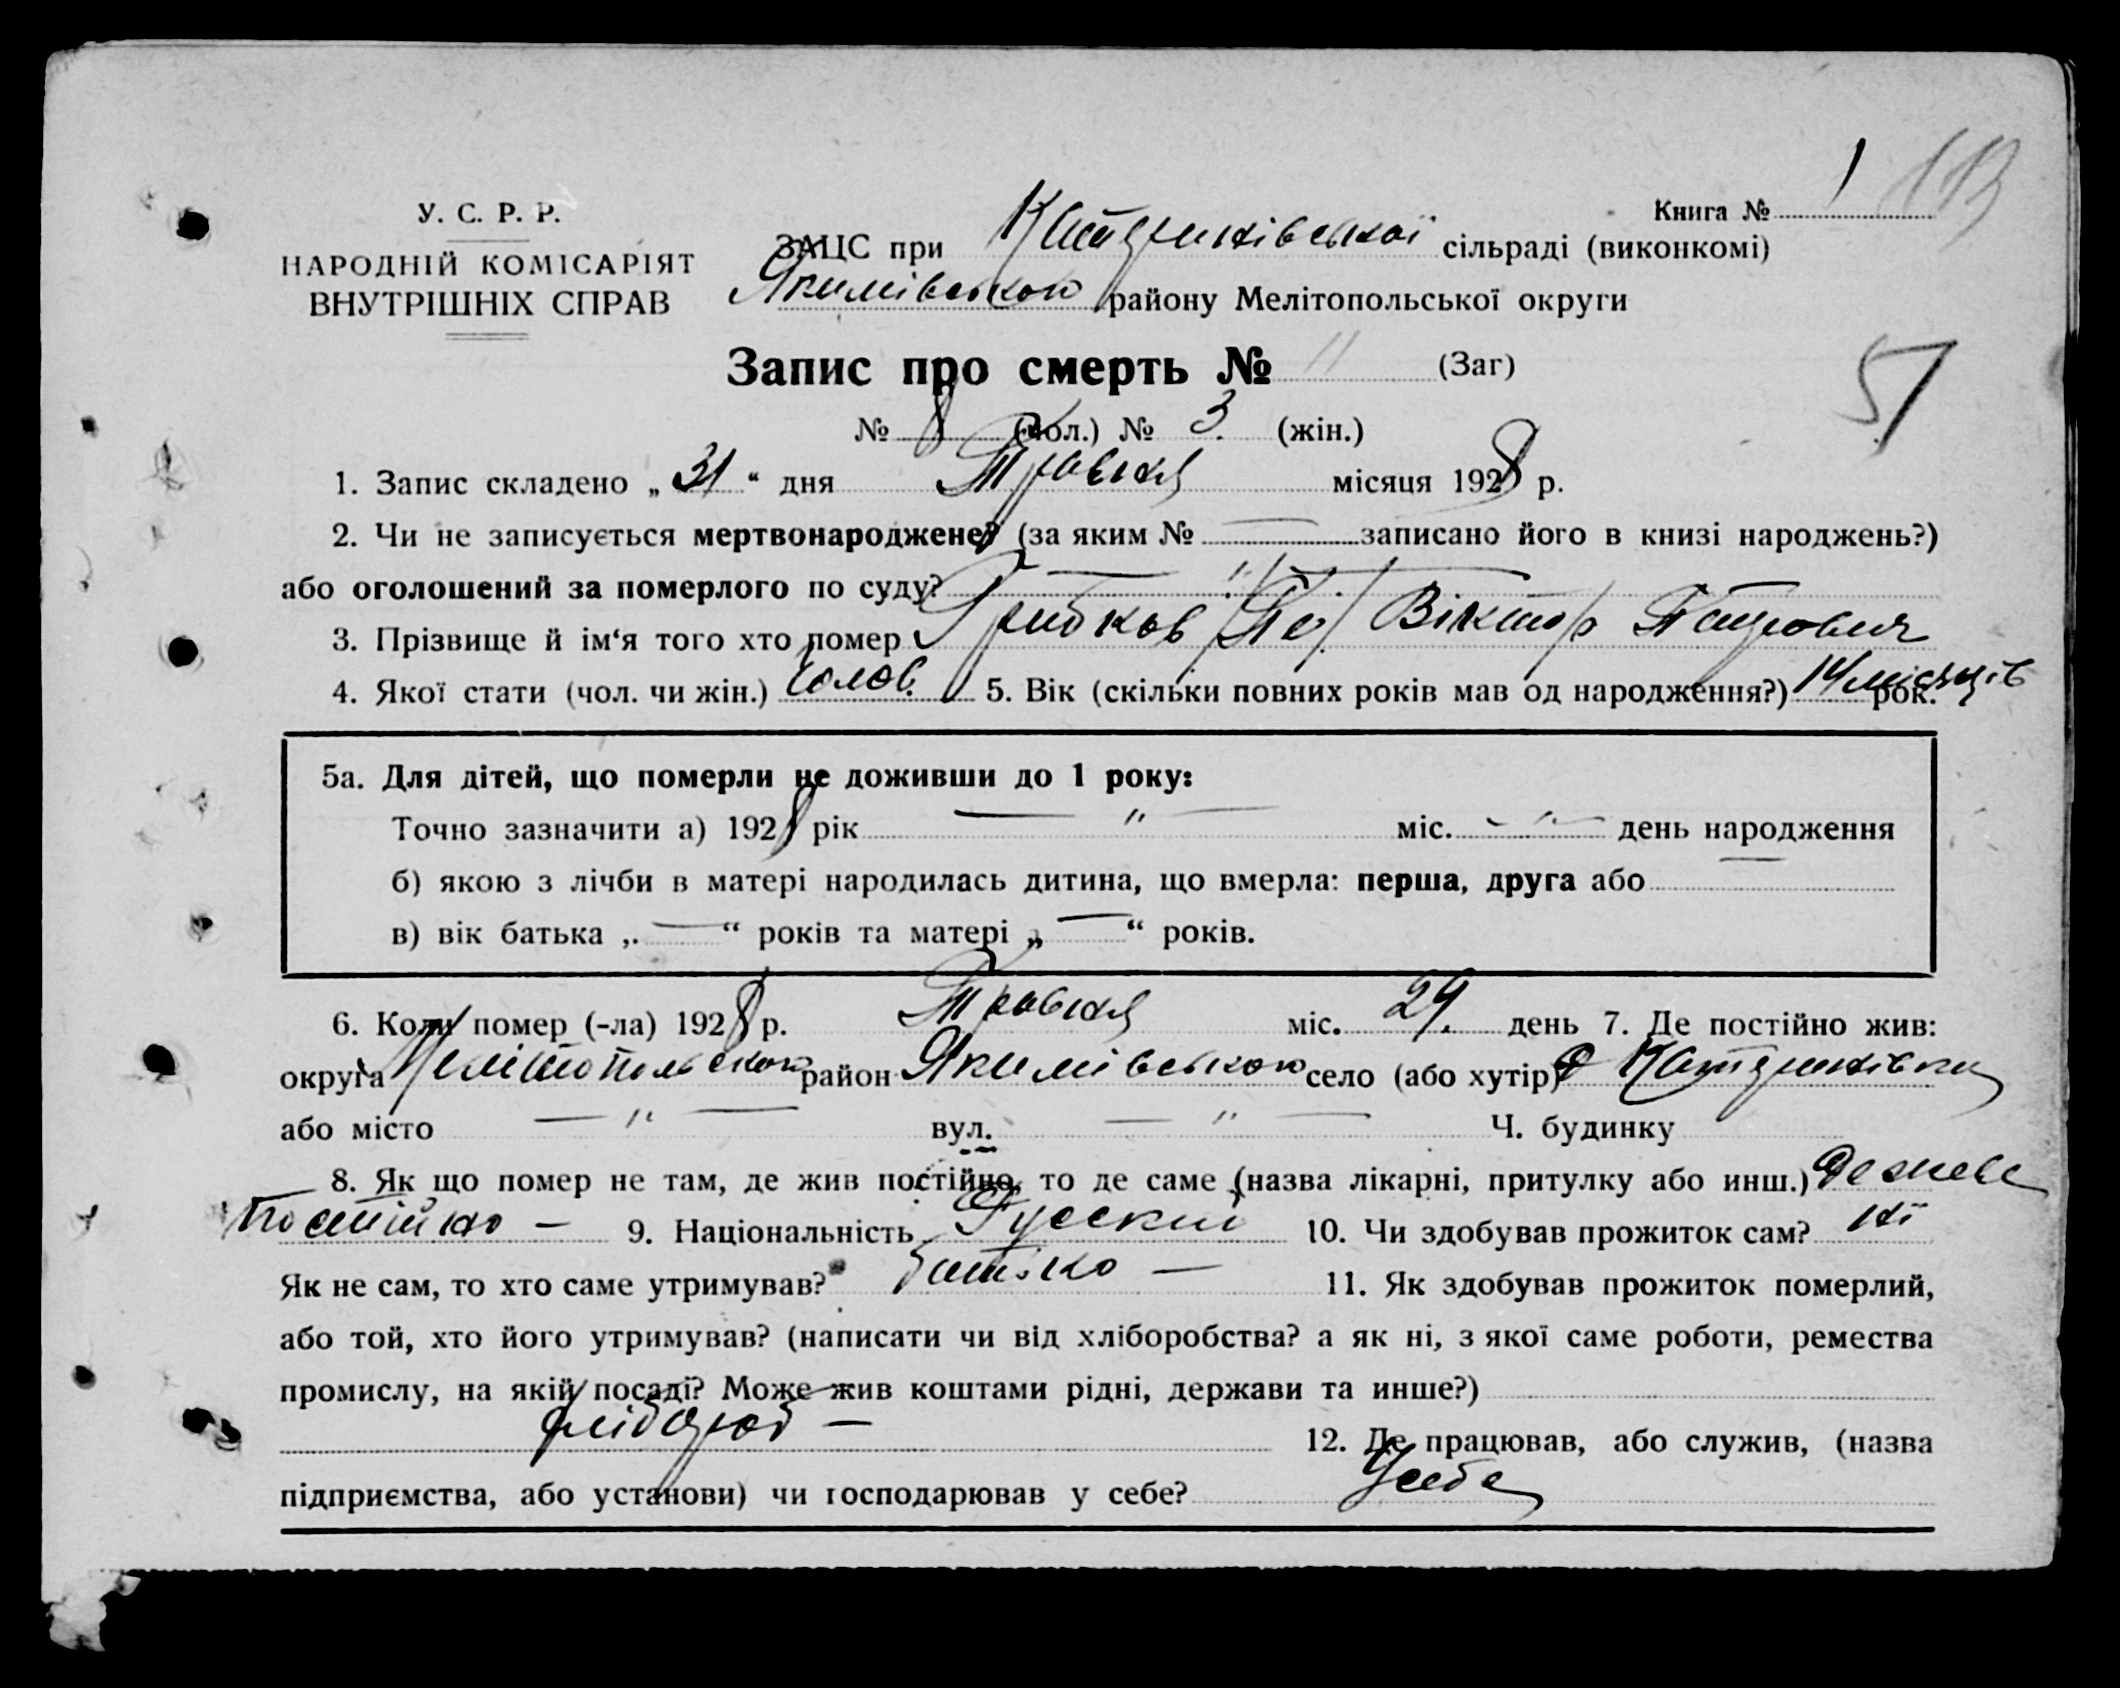 Книга № 1
У. С. Р. Р.
НАРОДНІЙ КОМІСАРІЯТ
ВНУТРІШНІХ СПРАВ
ЗАЦС при Катеринівської сільраді (виконкомі)
Якимівською району Мелітопольської округи
Запис про смерть № 11 (Заг)
№ 8 (чол.) № 3. (жін.)
57
1. Запис складено „31“ дня Травня місяця 1928 р.
2. Чи не записується мертвонароджене? (за яким № — записано його в книзі народжень?)
або оголошений за померлого по суду? — " —
3. Прізвище й ім‘я того хто помер Грибков Віктор Петрович
4. Якої стати (чол. чи жін.) Чолов. 5. Вік (скільки повних років мав од народження?) 14 місяців рок.
5а. Для дітей, що померли не доживши до 1 року:
Точно зазначити а) 1928 рік — " — міс. — " — день народження
б) якою з лічби в матері народилась дитина, що вмерла: перша, друга або —
в) вік батька „ — “ років та матері „ — “ років.
6. Коли помер (-ла) 1928 р. Травня міс. 29. день 7. Де постійно жив:
округа Мелітопольскою район Якимівською село (або хутір) Катеринівка
або місто — " — вул. — " — Ч. будинку
8. Як що помер не там, де жив постійно, то де саме (назва лікарні, притулку або инш.) Де живе
постійно — 9. Національність Русский 10. Чи здобував прожиток сам? ні
Як не сам, то хто саме утримував? батько — 11. Як здобував прожиток померлий,
або той, хто його утримував? (написати чи від хліборобства? а як ні, з якої саме роботи, ремества
промислу, на якій посаді? Може жив коштами рідні, держави та инше?)
хлібороб — 12. Де працював, або служив, (назва
підприємства, або установи) чи господарював у себе? У себе